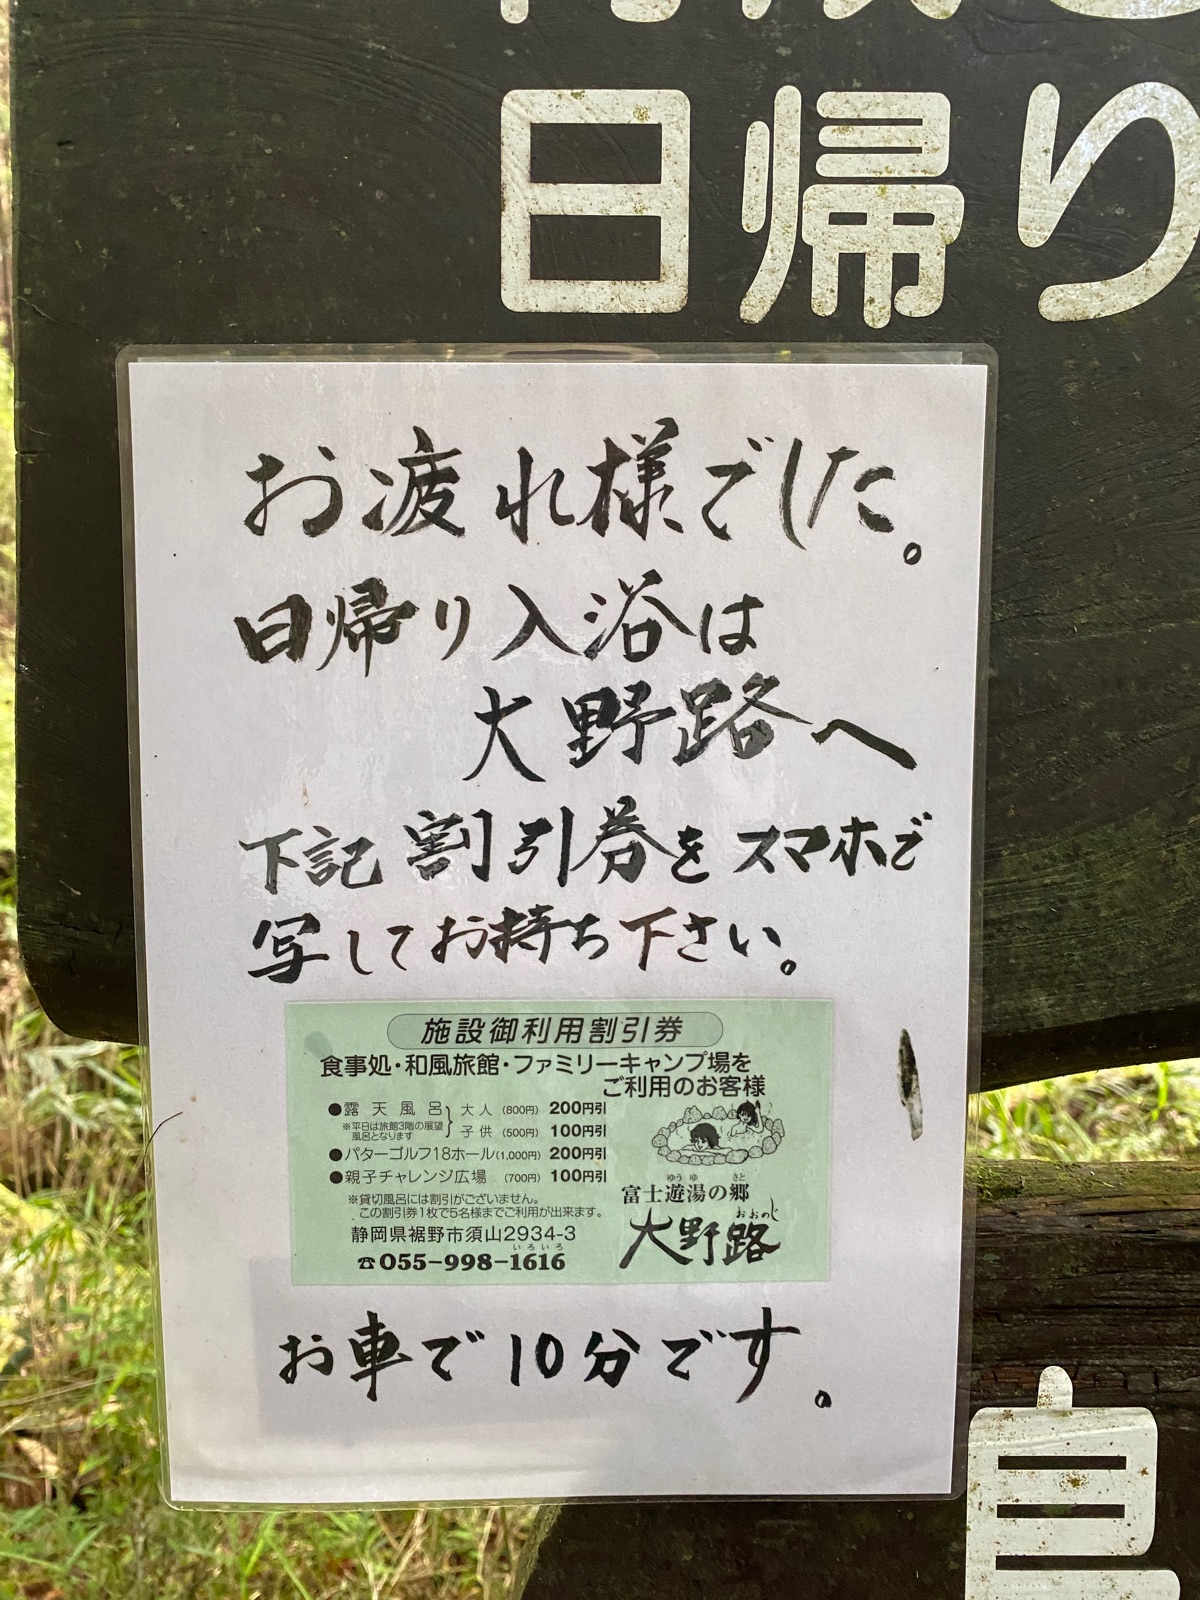 日帰り
お疲れ様でした。
日帰り入浴は
大野路へ
下記割引券をスマホで
写してお持ち下さい。
施設御利用割引券
食事処・和風旅館・ファミリーキャンプ場を
ご利用のお客様
●露天風呂 大人 (800円) 200円引
※平日は旅館3階の展望
風呂となります
子供 (500円) 100円引
●パターゴルフ18ホール(1,000円) 200円引
●親子チャレンジ広場 (700円) 100円引
※貸切風呂には割引がございません。
この割引券1枚で5名様までご利用が出来ます。
静岡県裾野市須山2934-3
いろいろ
☎055-998-1616
ゆうゆ さと
富士遊湯の郷
おおのじ
大野路
お車で10分です。